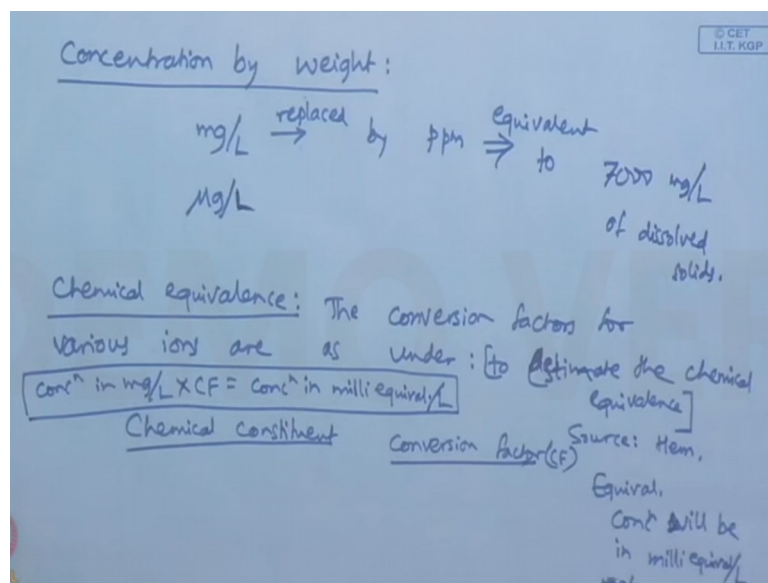 © CET
I.I.T. KGP
Concentration by weight:
mg/L replaced → by ppm equivalent ⇒ to 7000 mg/L
µg/L
of dissolved
solids.
Chemical equivalence: The conversion factors for
various ions are as under: [to estimate the chemical
equivalence]
concⁿ in mg/L X CF = concⁿ in milli equival./L
Chemical constituent Conversion factor (CF) Source: Hem,
Equival.
concⁿ will be
in milli equival/L